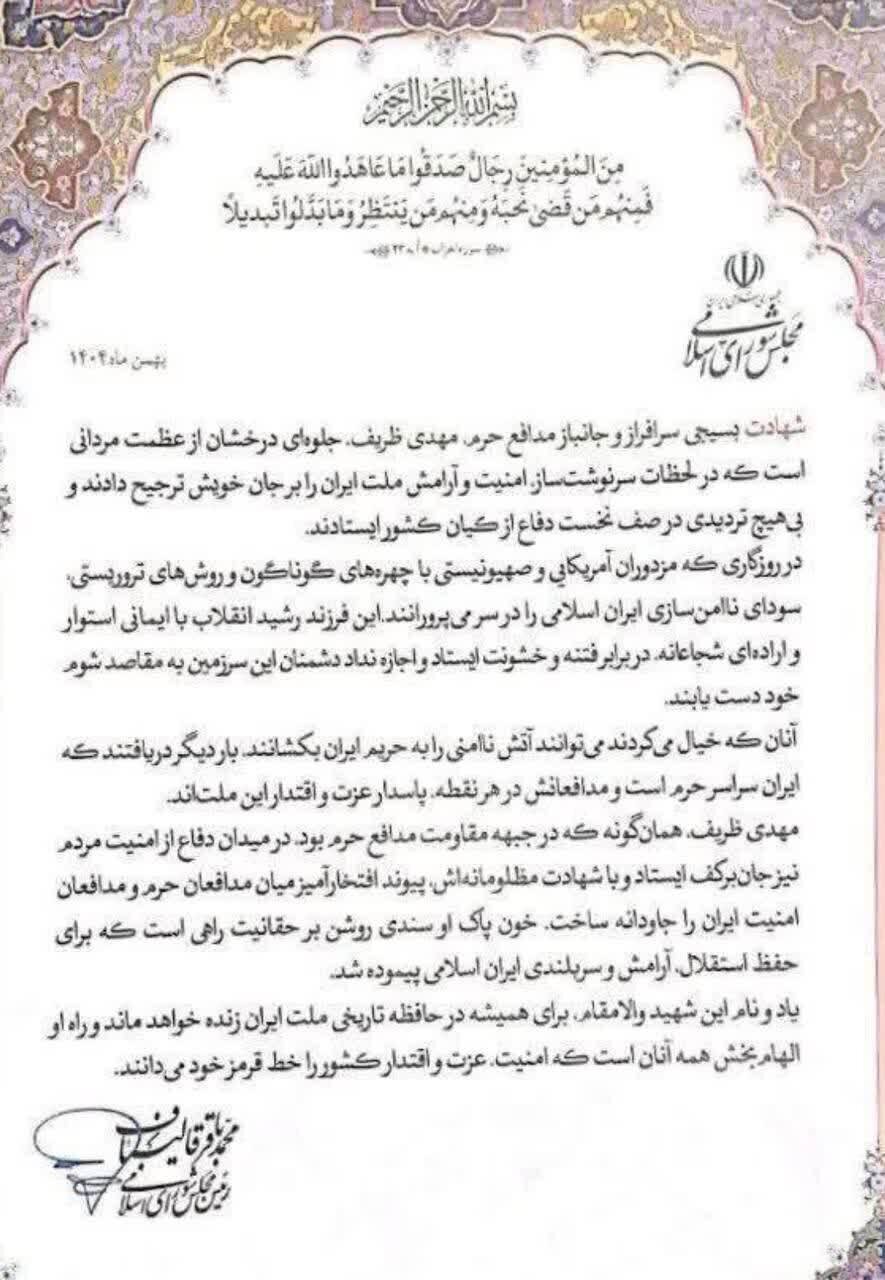 بسم الله الرحمن الرحیم
مِنَ المُؤمِنینَ رِجالٌ صَدَقُوا ما عاهَدُوا اللهَ عَلَیهِ
فَمِنهُم مَن قَضیٰ نَحبَهُ وَ مِنهُم مَن یَنتَظِرُ وَ ما بَدَّلُوا تَبدیلًا
سوره احزاب آیه ۲۳
جمهوری اسلامی ایران
مجلس شورای اسلامی
بهمن ماه ۱۴۰۴
شهادت بسیجی سرافراز و جانباز مدافع حرم، مهدی ظریف، جلوه‌ای درخشان از عظمت مردانی
است که در لحظات سرنوشت‌ساز، امنیت و آرامش ملت ایران را بر جان خویش ترجیح دادند و
بی‌هیچ تردیدی در صف نخست دفاع از کیان کشور ایستادند.
در روزگاری که مزدوران آمریکایی و صهیونیستی با چهره‌های گوناگون و روش‌های تروریستی،
سودای ناامن‌سازی ایران اسلامی را در سر می‌پرورانند، این فرزند رشید انقلاب با ایمانی استوار
و اراده‌ای شجاعانه، در برابر فتنه و خشونت ایستاد و اجازه نداد دشمنان این سرزمین به مقاصد شوم
خود دست یابند.
آنان که خیال می‌کردند می‌توانند آتش ناامنی را به حریم ایران بکشانند، بار دیگر دریافتند که
ایران سراسر حرم است و مدافعانش در هر نقطه، پاسدار عزت و اقتدار این ملت‌اند.
مهدی ظریف، همان‌گونه که در جبهه مقاومت مدافع حرم بود، در میدان دفاع از امنیت مردم
نیز جان‌برکف ایستاد و با شهادت مظلومانه‌اش، پیوند افتخارآمیز میان مدافعان حرم و مدافعان
امنیت ایران را جاودانه ساخت. خون پاک او سندی روشن بر حقانیت راهی است که برای
حفظ استقلال، آرامش و سربلندی ایران اسلامی پیموده شد.
یاد و نام این شهید والامقام، برای همیشه در حافظه تاریخی ملت ایران زنده خواهد ماند و راه او
الهام‌بخش همه آنان است که امنیت، عزت و اقتدار کشور را خط قرمز خود می‌دانند.
محمدباقر قالیباف
رئیس مجلس شورای اسلامی